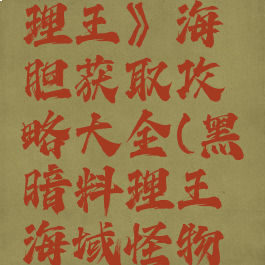 理王》海
胆获取攻
略大全(黑
暗料理王
海域怪物